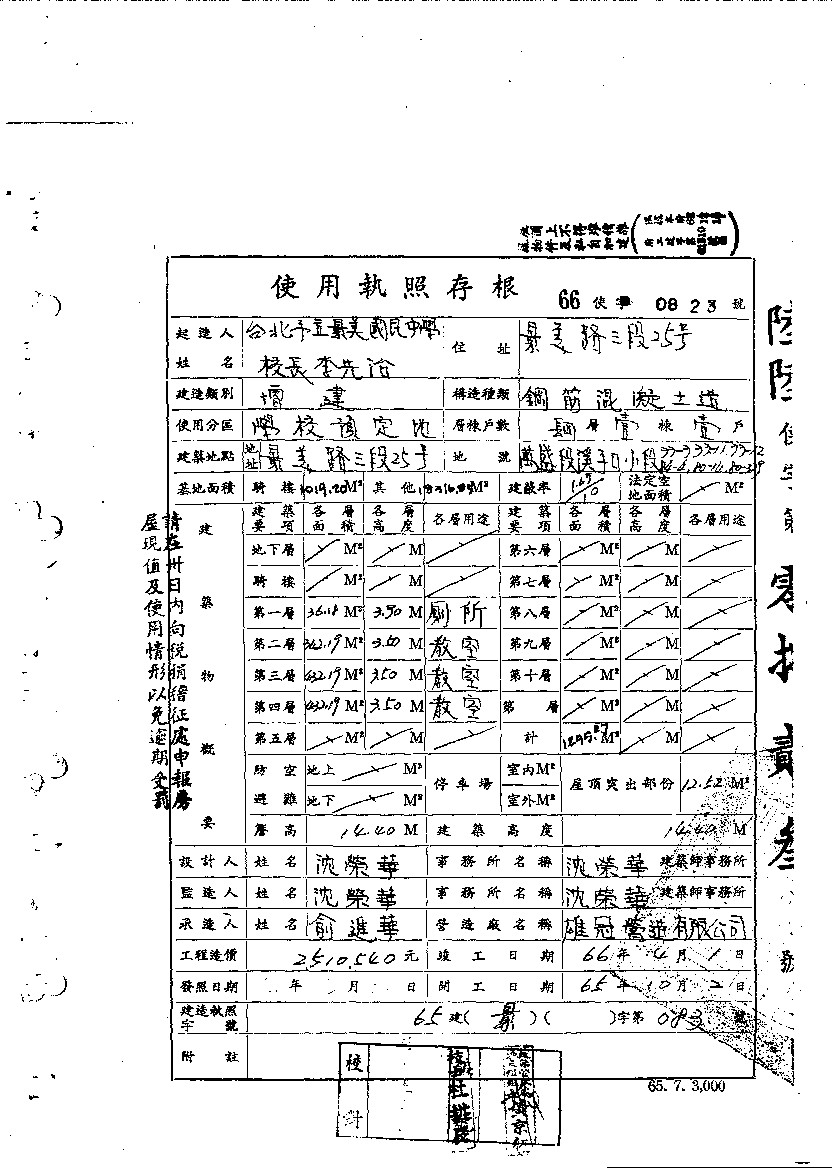 使用執照存根 66 使 0823 號
起造人姓名 台北市立景美國民中學 校長李先治 住址 景美路三段25号
建造類別 增建 構造種類 鋼筋混凝土造
使用分區 學校預定地 層棟戶數 層壹棟壹戶
建築地點 地址 景美路三段25号 地號 萬盛段溪子口小段
基地面積 騎樓 M² 其他 M² 建蔽率 法定空地面積 M²
建築物概要
建築要項 各層面積 各層高度 各層用途 建築要項 各層面積 各層高度 各層用途
地下層 M² M 第六層 M² M
騎樓 M² M 第七層 M² M
第一層 36.18 3.50 廁所 第八層 M² M
第二層 362.19 3.50 教室 第九層 M² M
第三層 432.19 3.50 教室 第十層 M² M
第四層 432.19 3.50 教室 第 層 M² M
第五層 M² M 計 M²
防空避難 地上 M² 地下 M² 停車場 室內M² 室外M² 屋頂突出部份 12.52 M²
簷高 14.40 M 建築高度 14.40 M
設計人 姓名 沈榮華 事務所名稱 沈榮華 建築師事務所
監造人 姓名 沈榮華 事務所名稱 沈榮華 建築師事務所
承造人 姓名 俞進華 營造廠名稱 雄冠營造有限公司
工程造價 2510,540 元 竣工日期 66年4月1日
發照日期 年 月 日 開工日期 65年10月2日
建造執照字號 65建(景)( )字第083 號
附註
65. 7. 3,000
校對
請在卅日內向稅捐稽征處申報房
屋現值及使用情形以免逾期受罰
陸陸使字第零捌貳叁號